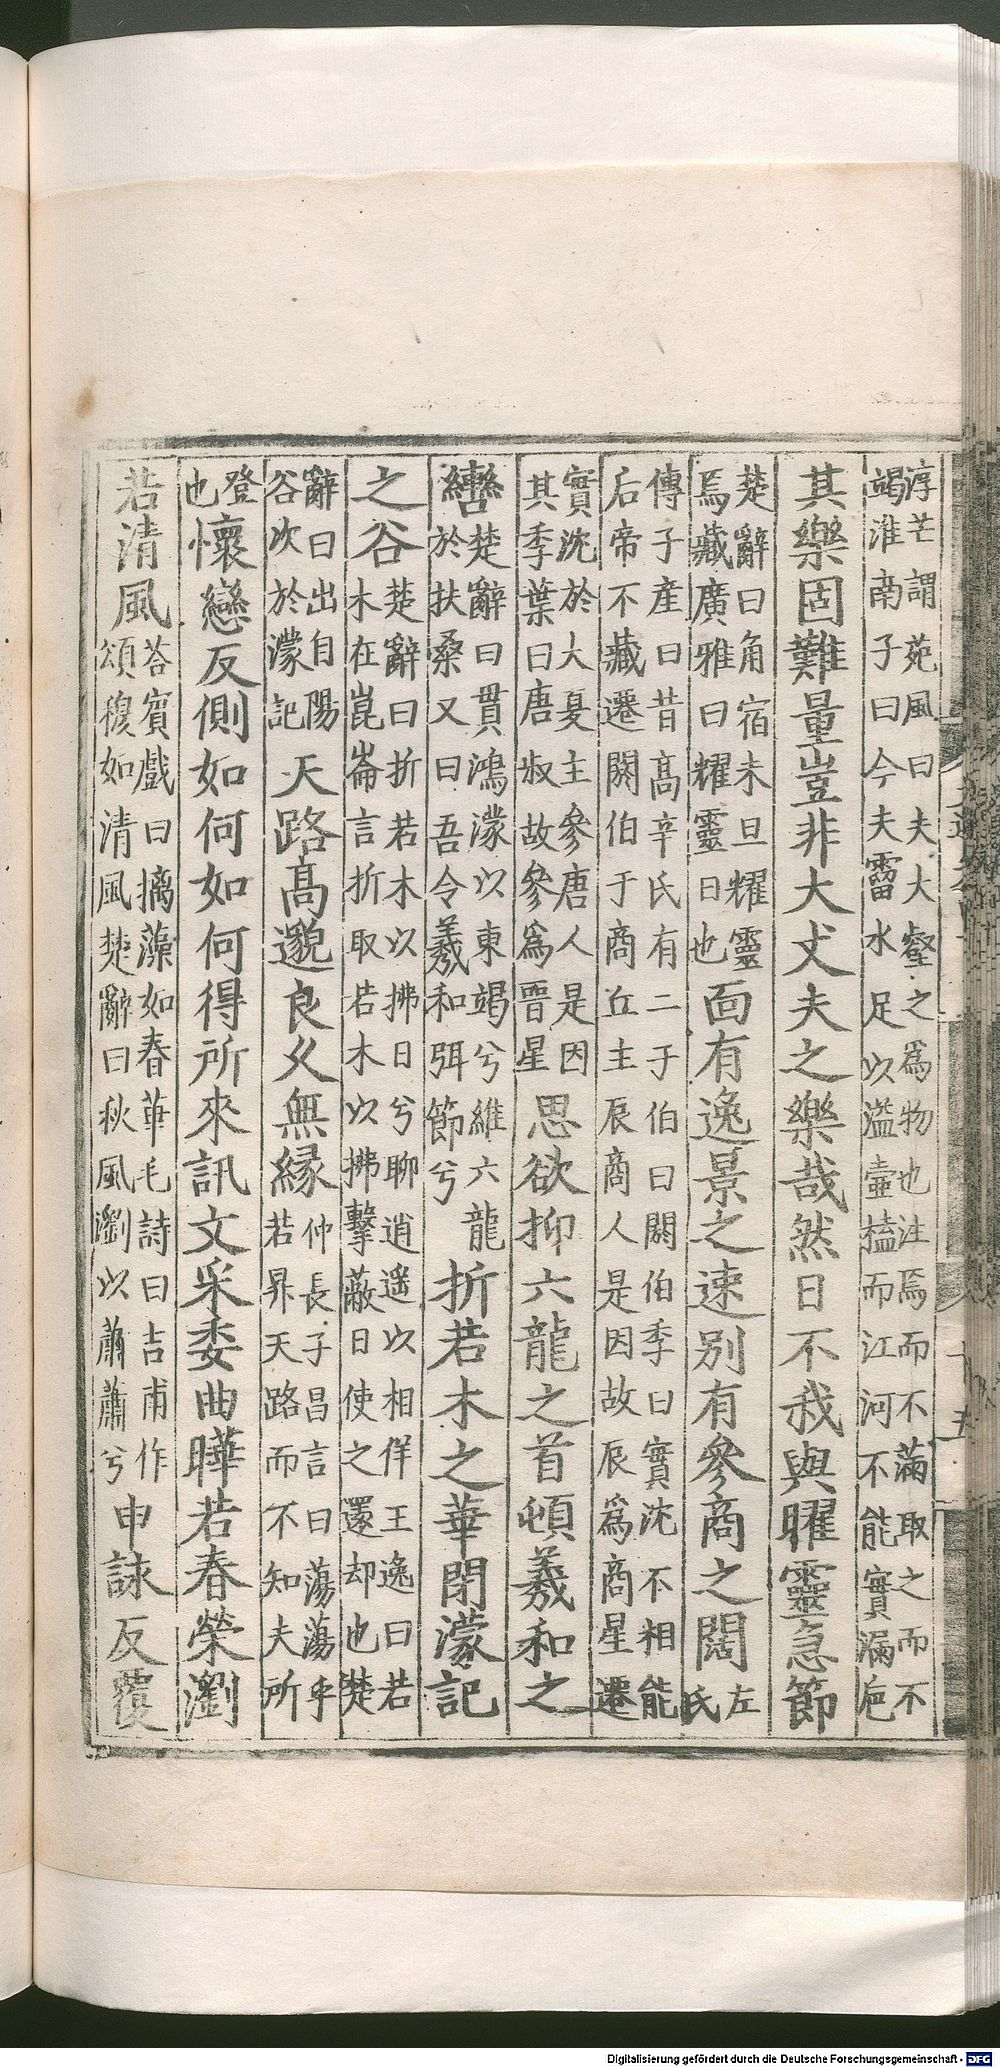 淳芒謂苑風曰夫大壑之爲物也注焉而不滿取之而不
竭淮南子曰今夫霤水足以溢壷榼而江河不能實漏巵
其樂固難量豈非大丈夫之樂哉然日不我與曜靈急節
楚辭曰角宿未旦耀靈
焉藏廣雅曰耀靈日也
面有逸景之速別有參商之闊
左
氏
傳子産曰昔髙辛氏有二子伯曰閼伯季曰實沈不相能
后帝不藏遷閼伯于商丘主辰商人是因故辰爲商星遷
實沈於大夏主參唐人是因
其季葉曰唐叔故參爲晉星
思欲抑六龍之首頓羲和之
轡
楚辭曰貫鴻濛以東竭兮維六龍
於扶桑又曰吾令羲和弭節兮
折若木之華閉濛記
之谷
楚辭曰折若木以拂日兮聊逍遥以相佯王逸曰若
木在崑崙言折取若木以拂擊蔽日使之還却也楚
辭曰出自陽
谷次於濛記
天路髙邈良乆無縁
仲長子昌言曰蕩蕩乎
若昇天路而不知夫所
登
也
懷戀反側如何如何得所來訊文采委曲曄若春榮瀏
若清風
荅賓戲曰摛藻如春華毛詩曰吉甫作
頌穆如清風楚辭曰秋風瀏以蕭蕭兮
申詠反覆
Digitalisierung gefördert durch die Deutsche Forschungsgemeinschaft - DFG